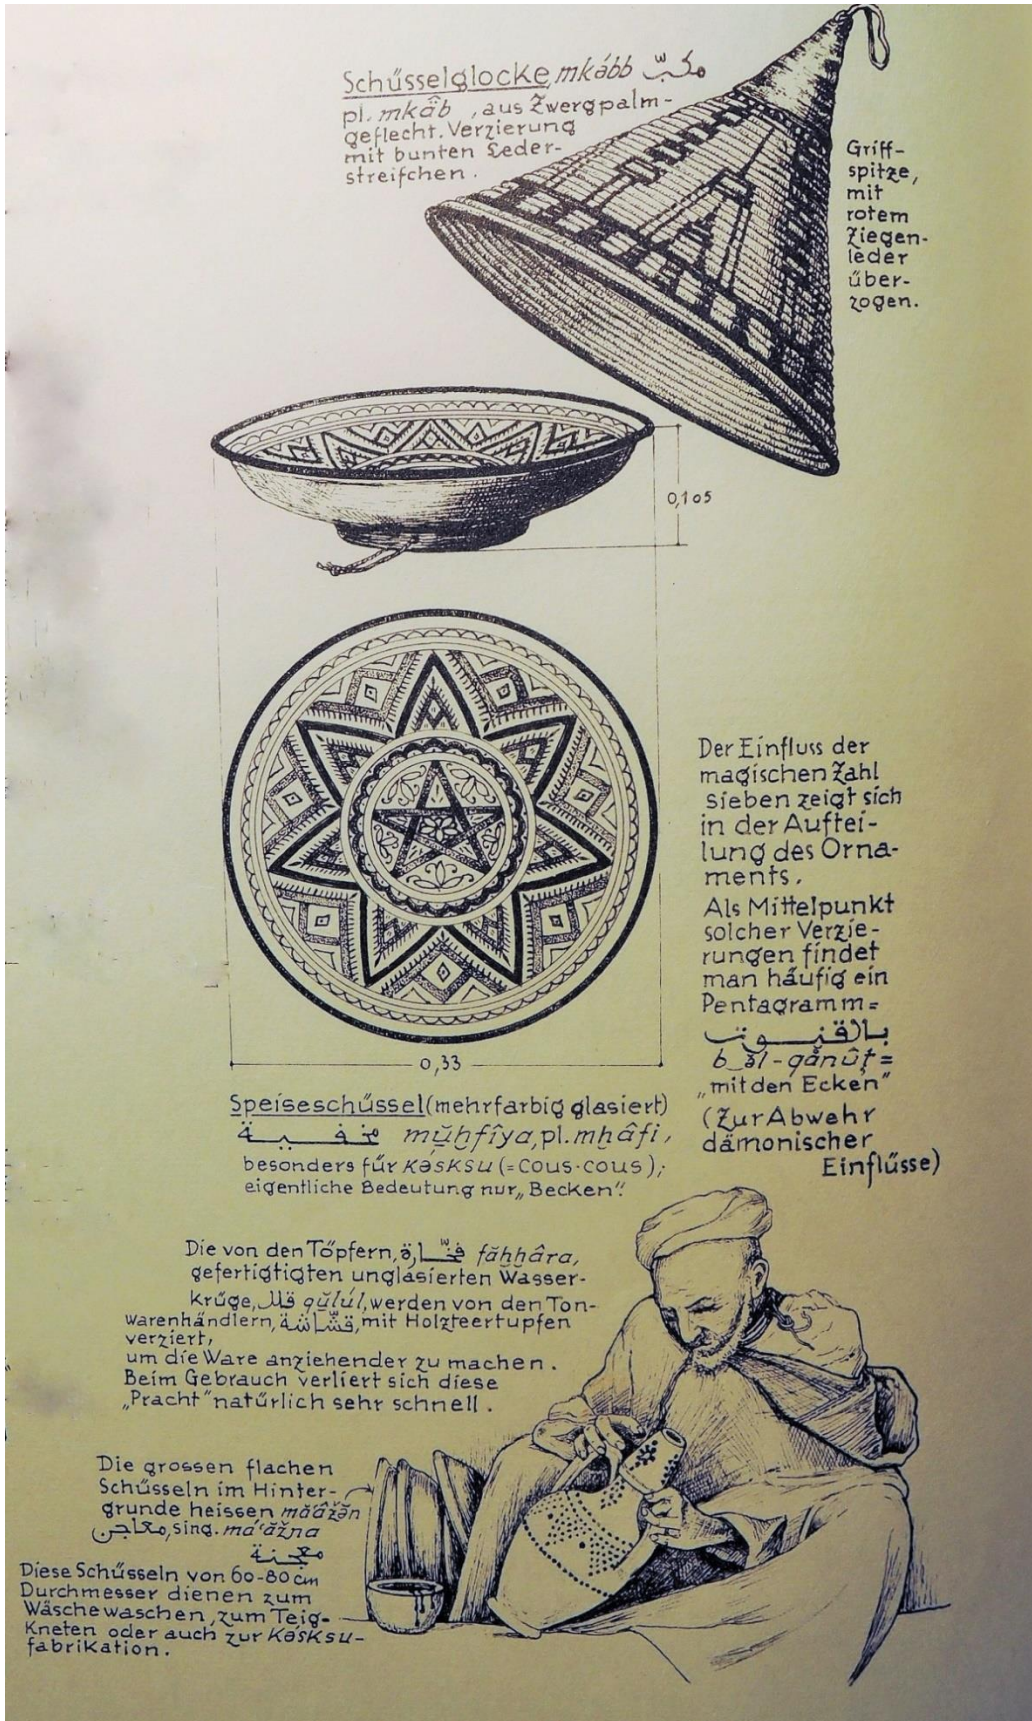 Schüsselglocke, mkább مكبّ
pl. mkâb , aus Zwergpalm-
geflecht. Verzierung
mit bunten Leder-
streifchen .
Griff-
spitze,
mit
rotem
Ziegen-
leder
über-
zogen.
0,105
Der Einfluss der
magischen Zahl
sieben zeigt sich
in der Auftei-
lung des Orna-
ments.
Als Mittelpunkt
solcher Verzie-
rungen findet
man häufig ein
Pentagramm =
بالقنوت
b_əl-qănûṭ =
„mit den Ecken"
(Zur Abwehr
dämonischer
Einflüsse)
0,33
Speiseschüssel (mehrfarbig glasiert)
مخفية mŭḫfîya, pl. mḫâfi,
besonders für kəsksu (= cous-cous);
eigentliche Bedeutung nur „Becken".
Die von den Töpfern, فخّارة făḫḫâra,
gefertigtigten unglasierten Wasser-
krüge, قلل qŭlúl, werden von den Ton-
warenhändlern, قشّاشة, mit Holzteertupfen
verziert,
um die Ware anziehender zu machen .
Beim Gebrauch verliert sich diese
„Pracht" natürlich sehr schnell .
Die grossen flachen
Schüsseln im Hinter-
grunde heissen măâžən
معاجن, sing. má'ăžna
معجنة
Diese Schüsseln von 60-80 cm
Durchmesser dienen zum
Wäschewaschen, zum Teig-
kneten oder auch zur kəsksu-
fabrikation .